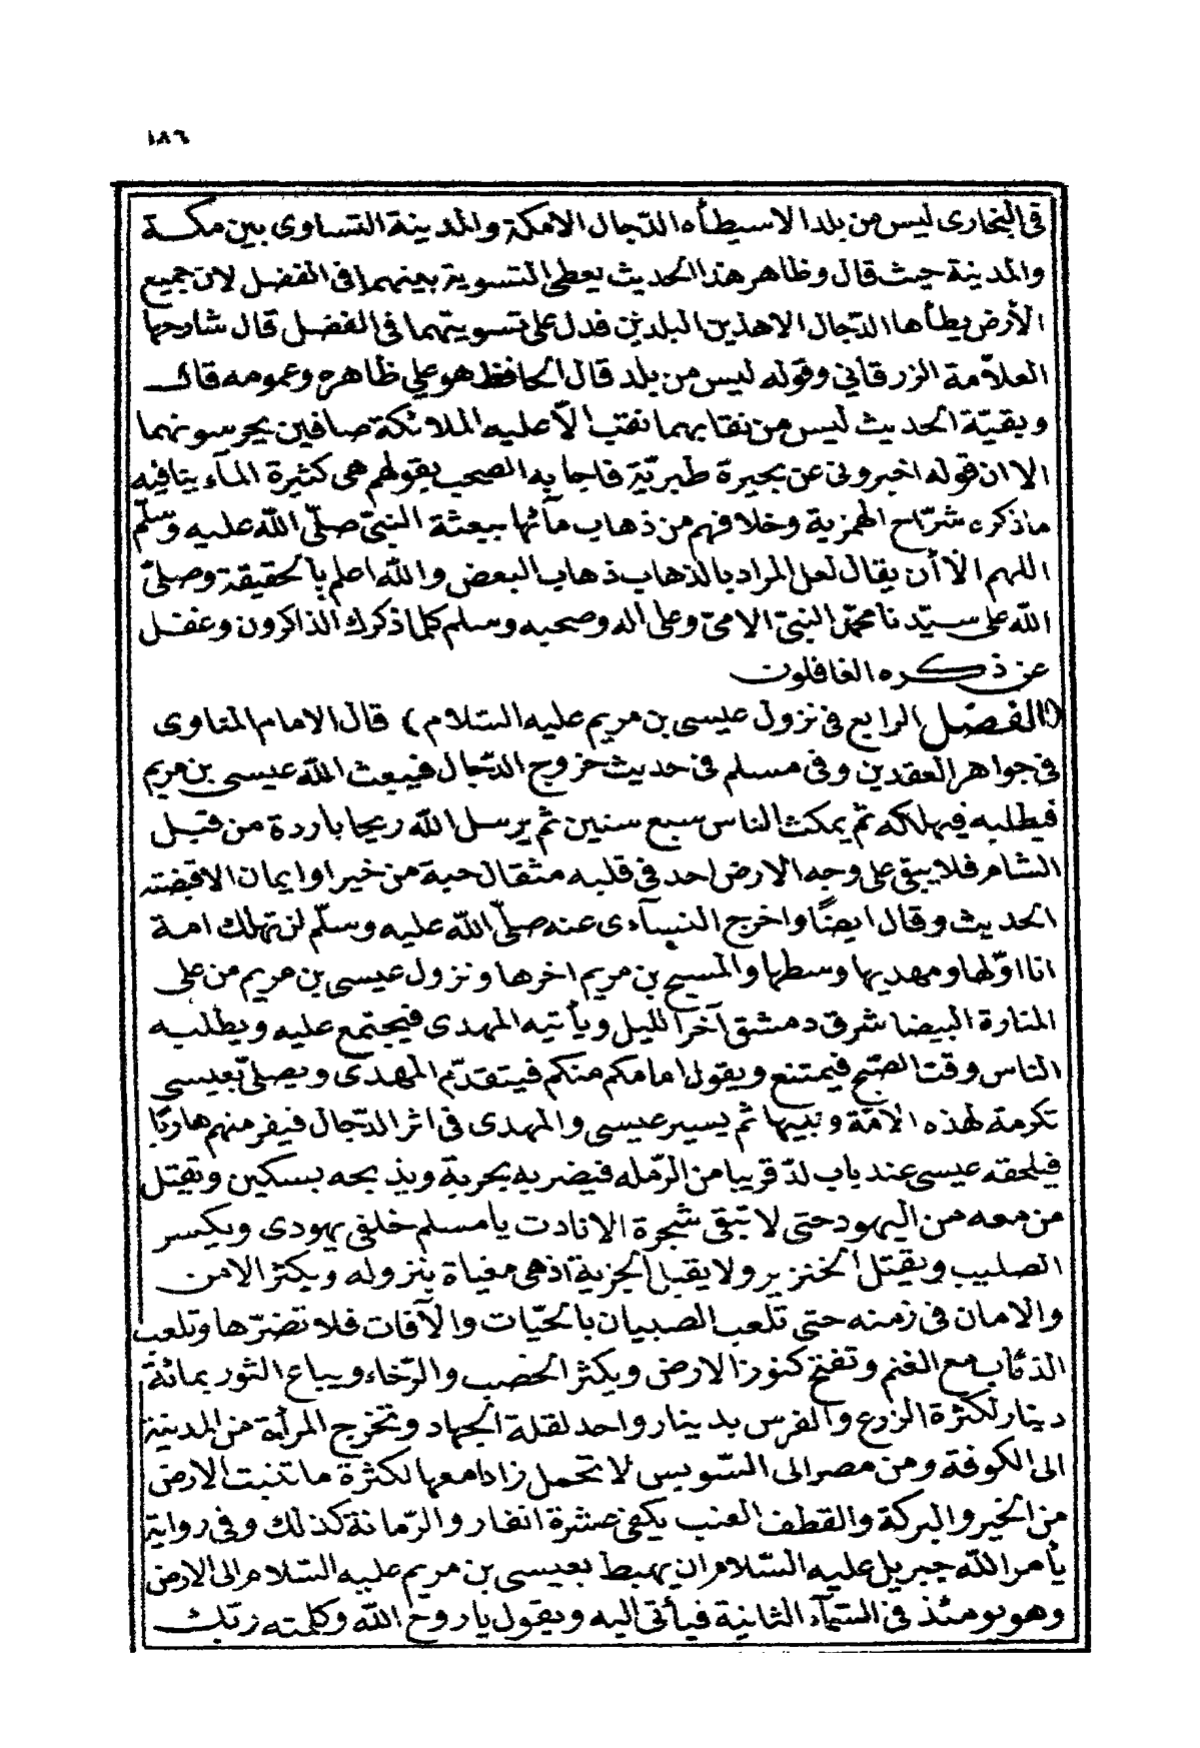 ١٨٦
فى البخارى ليس من بلد الا سيطأه الدّجال الا مكة والمدينة التساوى بين مكة
والمدينة حيث قال وظاهر هذا الحديث يعطى التسوية بينهما فى الفضل لان جميع
الأرض يطأها الدّجال الا هذين البلدين فدل على تسويتهما فى الفضل قال شارحها
العلاّمة الزرقاني وقوله ليس من بلد قال الحافظ هو على ظاهره وعمومه قال
وبقيّة الحديث ليس من نقابهما نقب الاّ عليه الملائكة صافين يحرسونهما
الا ان قوله اخبرونى عن بحيرة طبريّة فاجابه الصحب بقولهم هى كثيرة المآء ينافيه
ماذكره شرّاح الهمزية وخلافهم من ذهاب مآئها ببعثة النبىّ صلّى الله عليه وسلّم
اللهم الاّ أن يقال لعل المراد بالذهاب ذهاب البعض والله اعلم بالحقيقة وصلىّ
الله على سيّدنا محمّد النبىّ الامىّ وعلى اله وصحبه وسلم كلما ذكرك الذاكرون وغفل
عن ذكره الغافلون
(الفصل الرابع فى نزول عيسى بن مريم عليه السّلام) قال الامام المناوى
فى جواهر العقدين وفى مسلم فى حديث خروج الدّجال فيبعث الله عيسى بن مريم
فيطلبه فيهلكه ثم يمكث الناس سبع سنين ثم يرسل الله ريحا باردة من قبل
الشام فلا يبقى على وجه الارض احد فى قلبه مثقال حبة من خير او ايمان الا قبضته
الحديث وقال ايضًا واخرج النسآءى عنه صلّى الله عليه وسلّم لن تهلك امة
انا اوّلها ومهديها وسطها والمسيح بن مريم اخرها ونزول عيسى بن مريم من على
المنارة البيضا شرق دمشق آخر الليل ويأتيه المهدى فيجتمع عليه ويطلبه
الناس وقت الصّبح فيمتنع ويقول امامكم منكم فيتقدّم المهدى ويصلىّ بعيسى
تكرمة لهذه الامّة ونبيها ثم يسير عيسى والمهدى فى اثر الدّجال فيفر منهم هاربًا
فيلحقه عيسى عند باب لدّ قريبا من الرّمله فيضربه بحربة ويذبحه بسكين ويقتل
من معه من اليهود حتى لا تبقى شجرة الا نادت يا مسلم خلفى يهودى ويكسر
الصليب ويقتل الخنزير ولا يقبل الجزية اذ هى مغياة بنزوله ويكثر الامن
والامان فى زمنه حتى تلعب الصبيان بالحيّات والآفات فلا تضرّها وتلعب
الذئاب مع الغنم وتفتح كنوز الارض ويكثر الخصب والرّخاء ويباع الثور بمائة
دينار لكثرة الزرع والفرس بدينار واحد لقلة الجهاد وتخرج المرأة من المدينة
الى الكوفة ومن مصر الى السّويس لا تحمل زادا معها لكثرة ما تنبت الارض
من الخير والبركة والقطف العنب يكفى عشرة انفار والرّمانة كذلك وفى رواية
يأمر الله جبريل عليه السّلام ان يهبط بعيسى بن مريم عليه السّلام الى الارض
وهو يومئذ فى السّمآء الثانية فيأتى اليه ويقول يا روح الله وكلمته ربّك